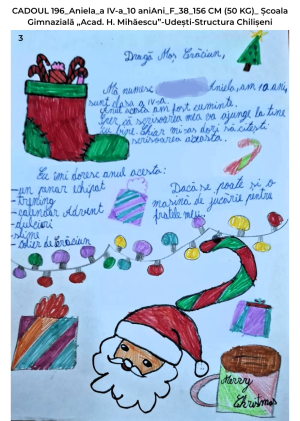 CADOUL 196_Aniela_a IV-a_10 aniAni_F_38_156 CM (50 KG)_ Școala
Gimnazială „Acad. H. Mihăescu”-Udești-Structura Chilișeni
3
Dragă Moș Crăciun,
Mă numesc Aniela, am 10 ani,
sunt clasa a IV-a.
Anul acesta am fost cuminte.
Sper că scrisoarea mea va ajunge la tine
cu bine. Chiar mi-aș dori să citești
scrisoarea aceasta.
Eu îmi doresc anul acesta:
-un penar echipat
-trening
-calendar Advent
-dulciuri
-slime
-colier de Crăciun
Dacă se poate și o
mașină de jucărie pentru
fratele meu.
Merry
Christmas